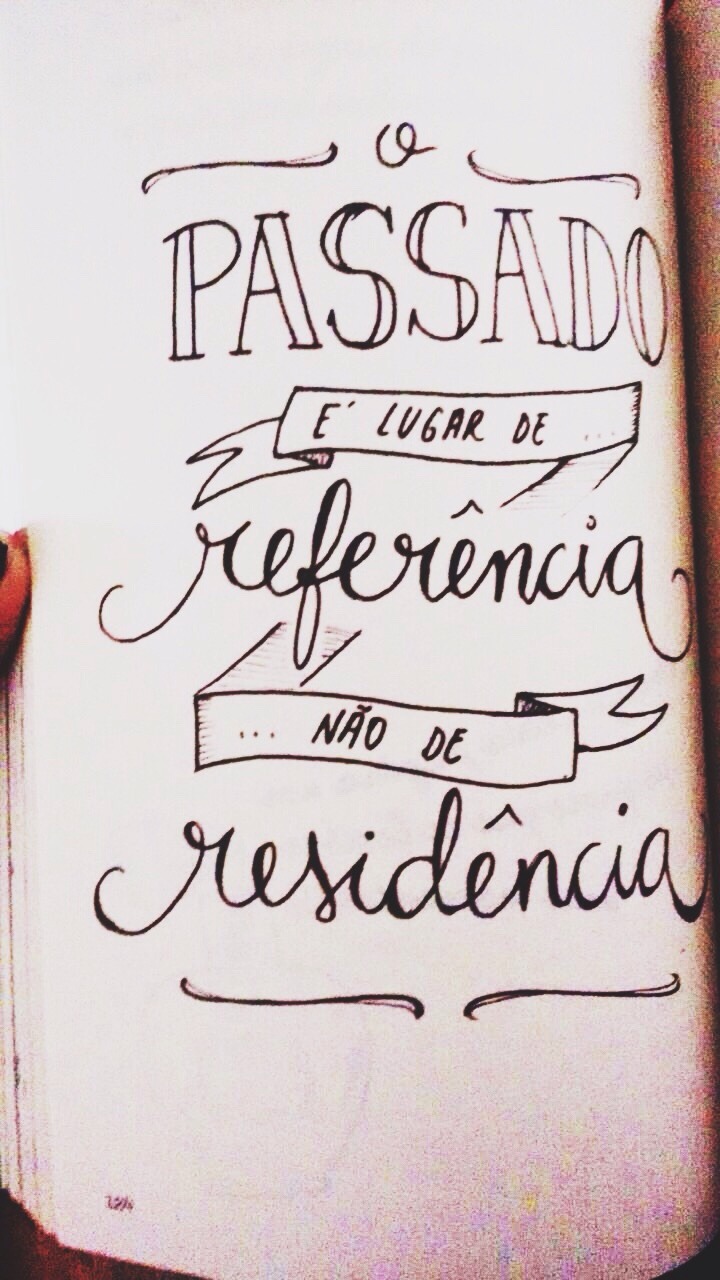 o
PASSADO
E' LUGAR DE ...
referência
... NÃO DE
residência